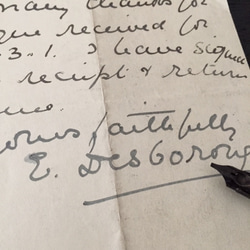 many thanks for
que received for
3. 1. I have signe
receipt & return
yours faithfully
E. Desborou